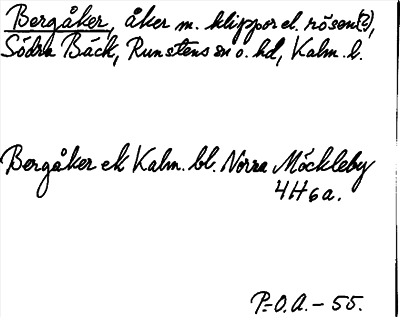 Bergåker, åker m. klippor el. rösen(?),
Södra Bäck, Runstens sn o. hd, Kalm. l.
Bergåker ek Kalm. bl. Norra Möckleby
4H6a.
P-O.A.-55.